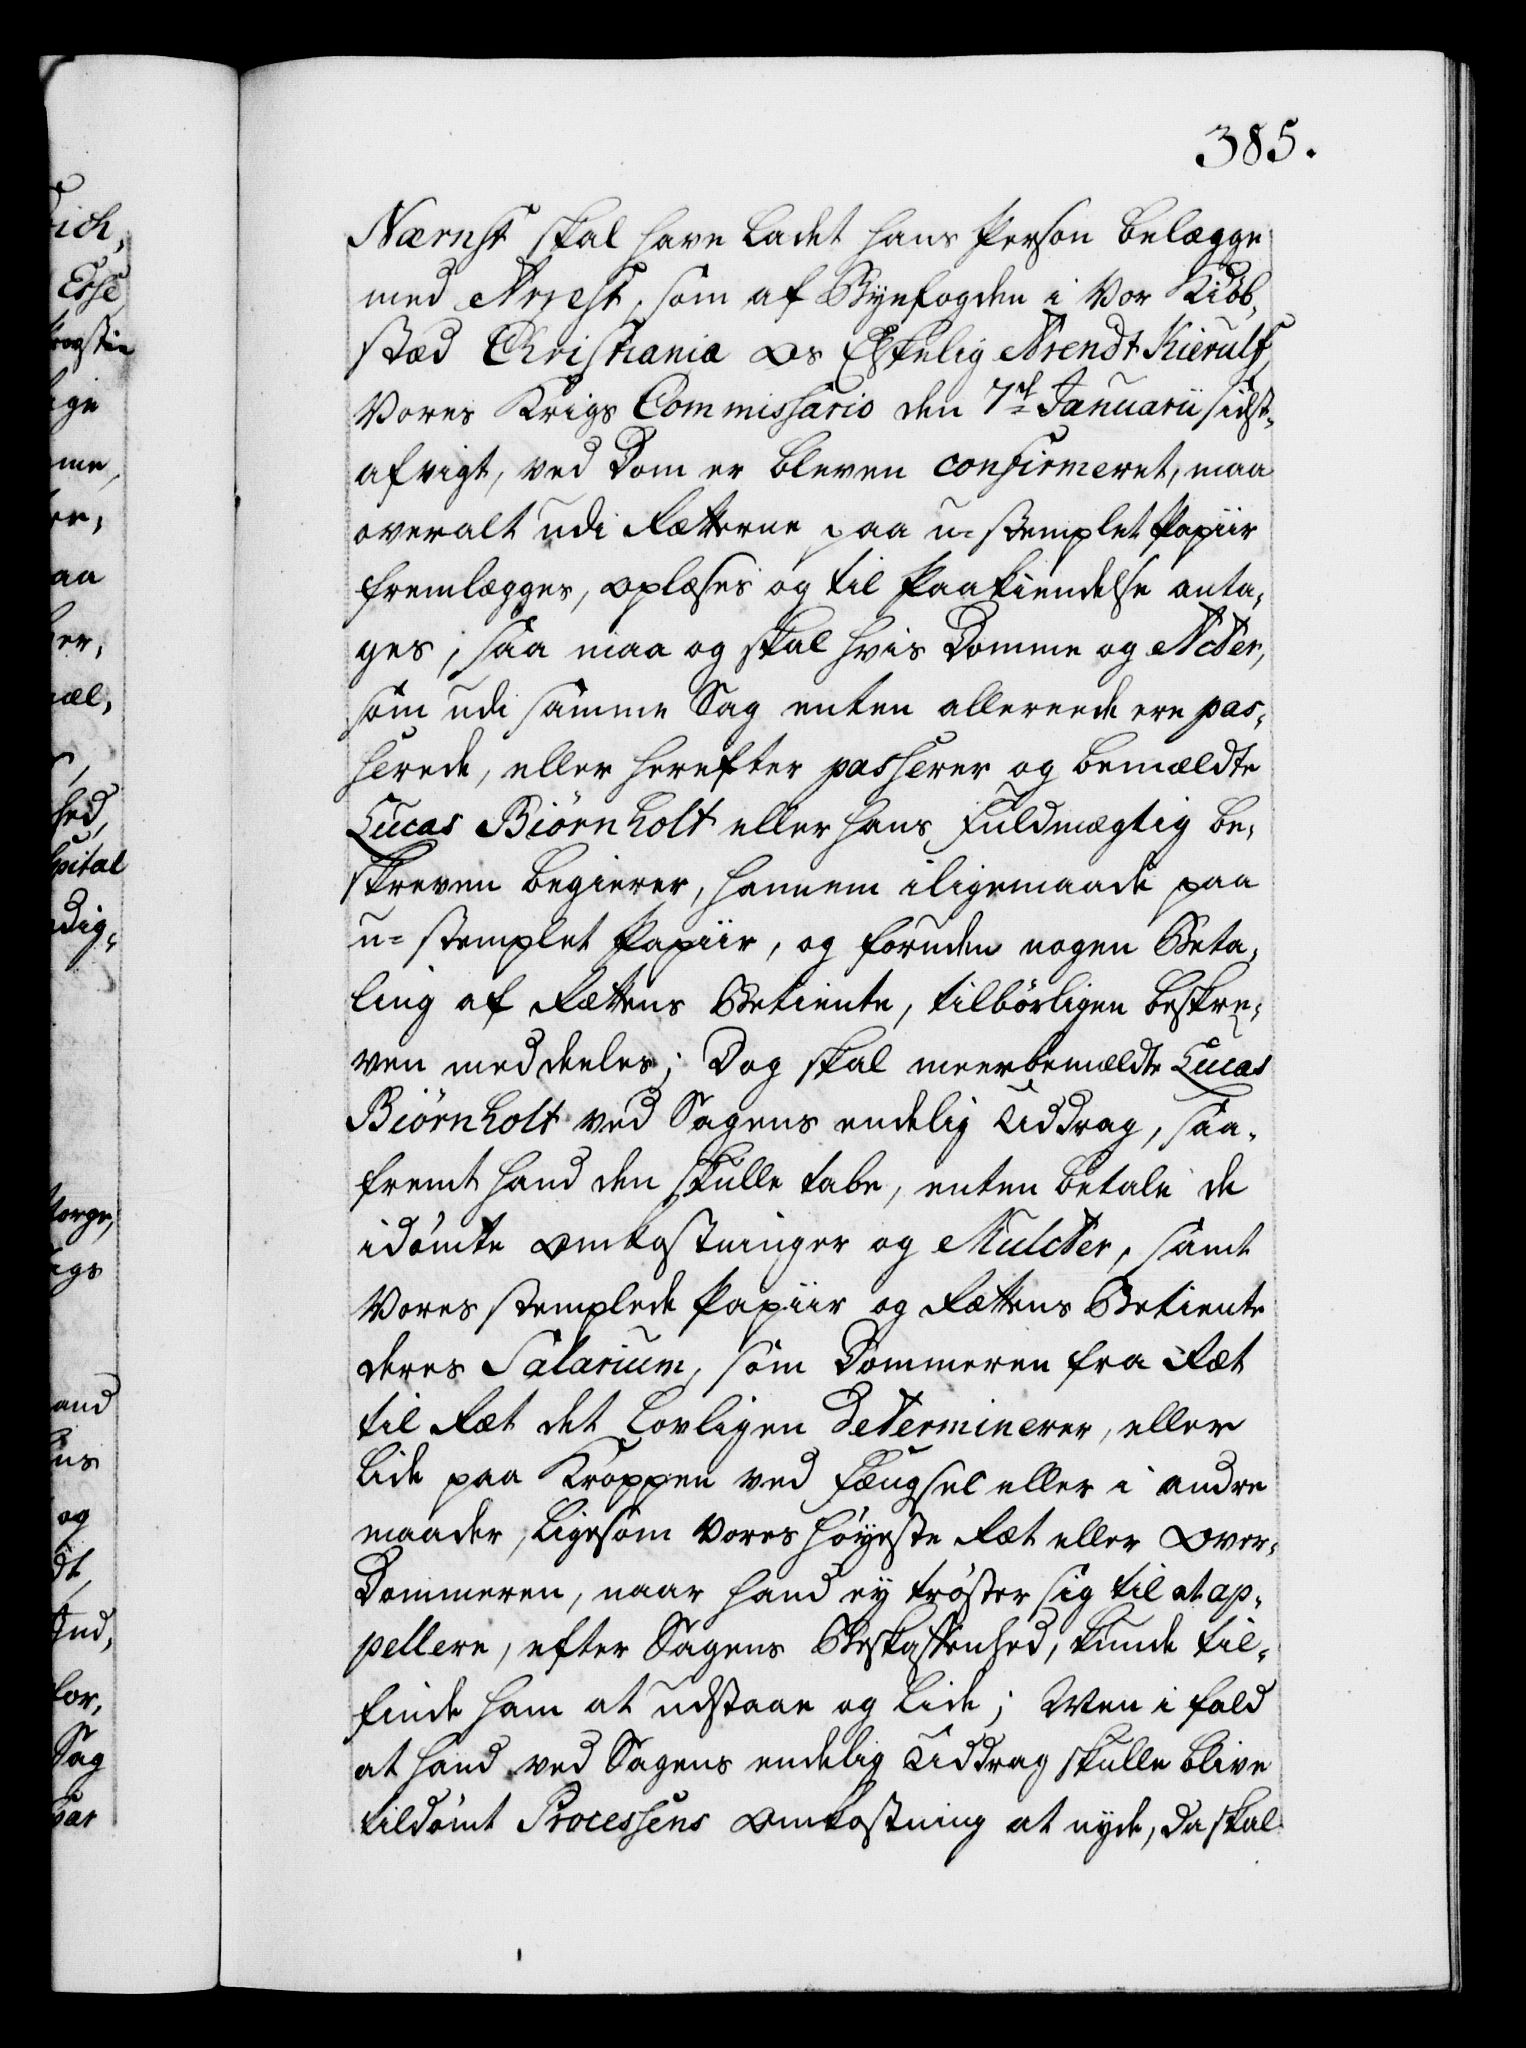 385.
Nærnst skal have ladet hans Person belægge
med Arrest, som af Byefogden i Vor Kiöb,
stæd Christiania Os Elskelig Arendt Kierulf,
Vores Krigs Commissario den 7de Januarii sidst-
afvigt, ved Dom er bleven confirmeret, maa
overalt udi Rætterne paa u-stemplet Papiir
fremlægges, oplæses og til Paakiendelse anta,
ges, saa maa og skal hvis Domme og Acter,
som udi samme Sag enten allereede ere pas,
serede, eller herefter passerer og bemældte
Lucas Biörnholt eller hans Fuldmægtig be,
skreven begierer, hannem iligemaade paa
u-stemplet Papiir, og foruden nogen Beta,
ling af Rættens Betiente, tilbörligen beskre,
ven meddeeles; Dog skal meerbemældte Lucas
Biörnholt ved Sagens endelig Uddrag, saa,
fremt hand den skulle tabe, enten betale de
idömte Omkostninger og Mulcter, samt
Vores stemplede Papiir og Rættens Betiente
deres Salarium, som Dommeren fra Ræt
til Ræt det lovligen determinerer, eller
lide paa Kroppen ved Fængsel eller i andre
maader, ligesom Vores Höyeste Ræt eller Over,
Dommeren, naar hand ey tröster sig til at ap,
pellere, efter Sagens Beskaffenhed, kunde til,
finde ham at udstaae og lide; Men i fald
at hand ved Sagens endelig Uddrag skulle blive
tildömt Processens Omkostning at nyde, da skal